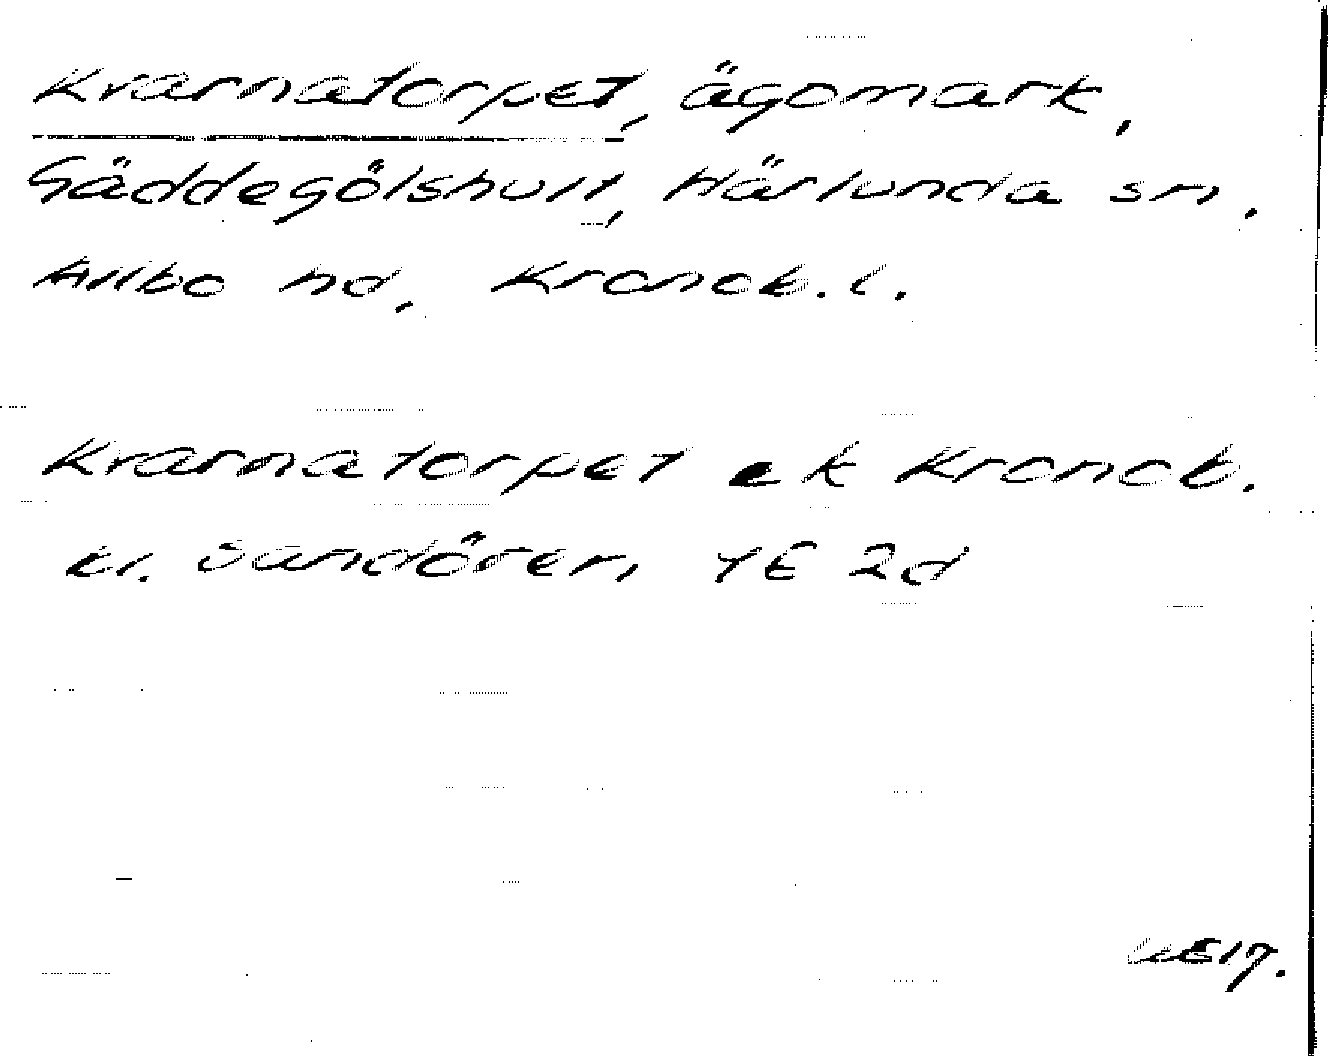 Kvarnatorpet, ägomark,
Gäddegölshult, Härlunda sn,
Allbo hd, Kronob. l.
Kvarnatorpet ek Kronob.
bl. Sandören, 4E 2d